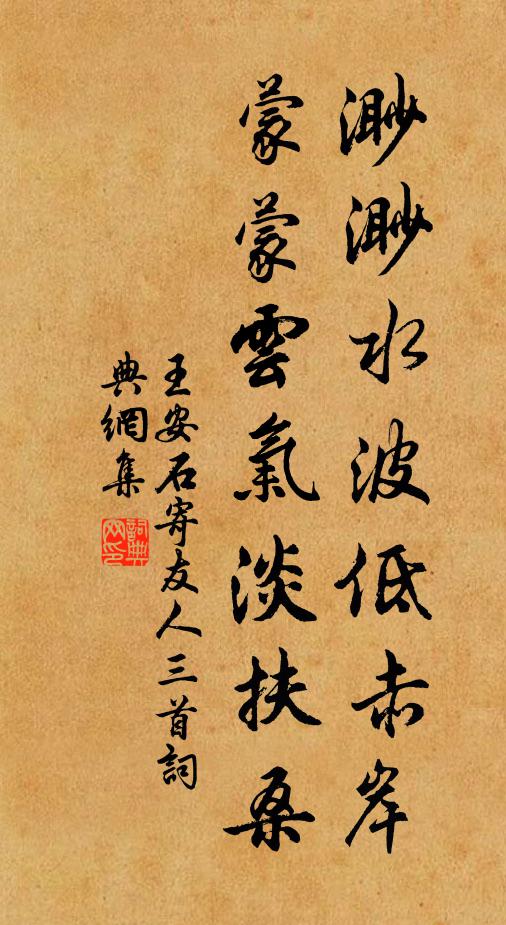 渺渺水波低赤岸
蒙蒙雲氣淡扶桑
王安石寄友人三首詞
典網集
詞典網印